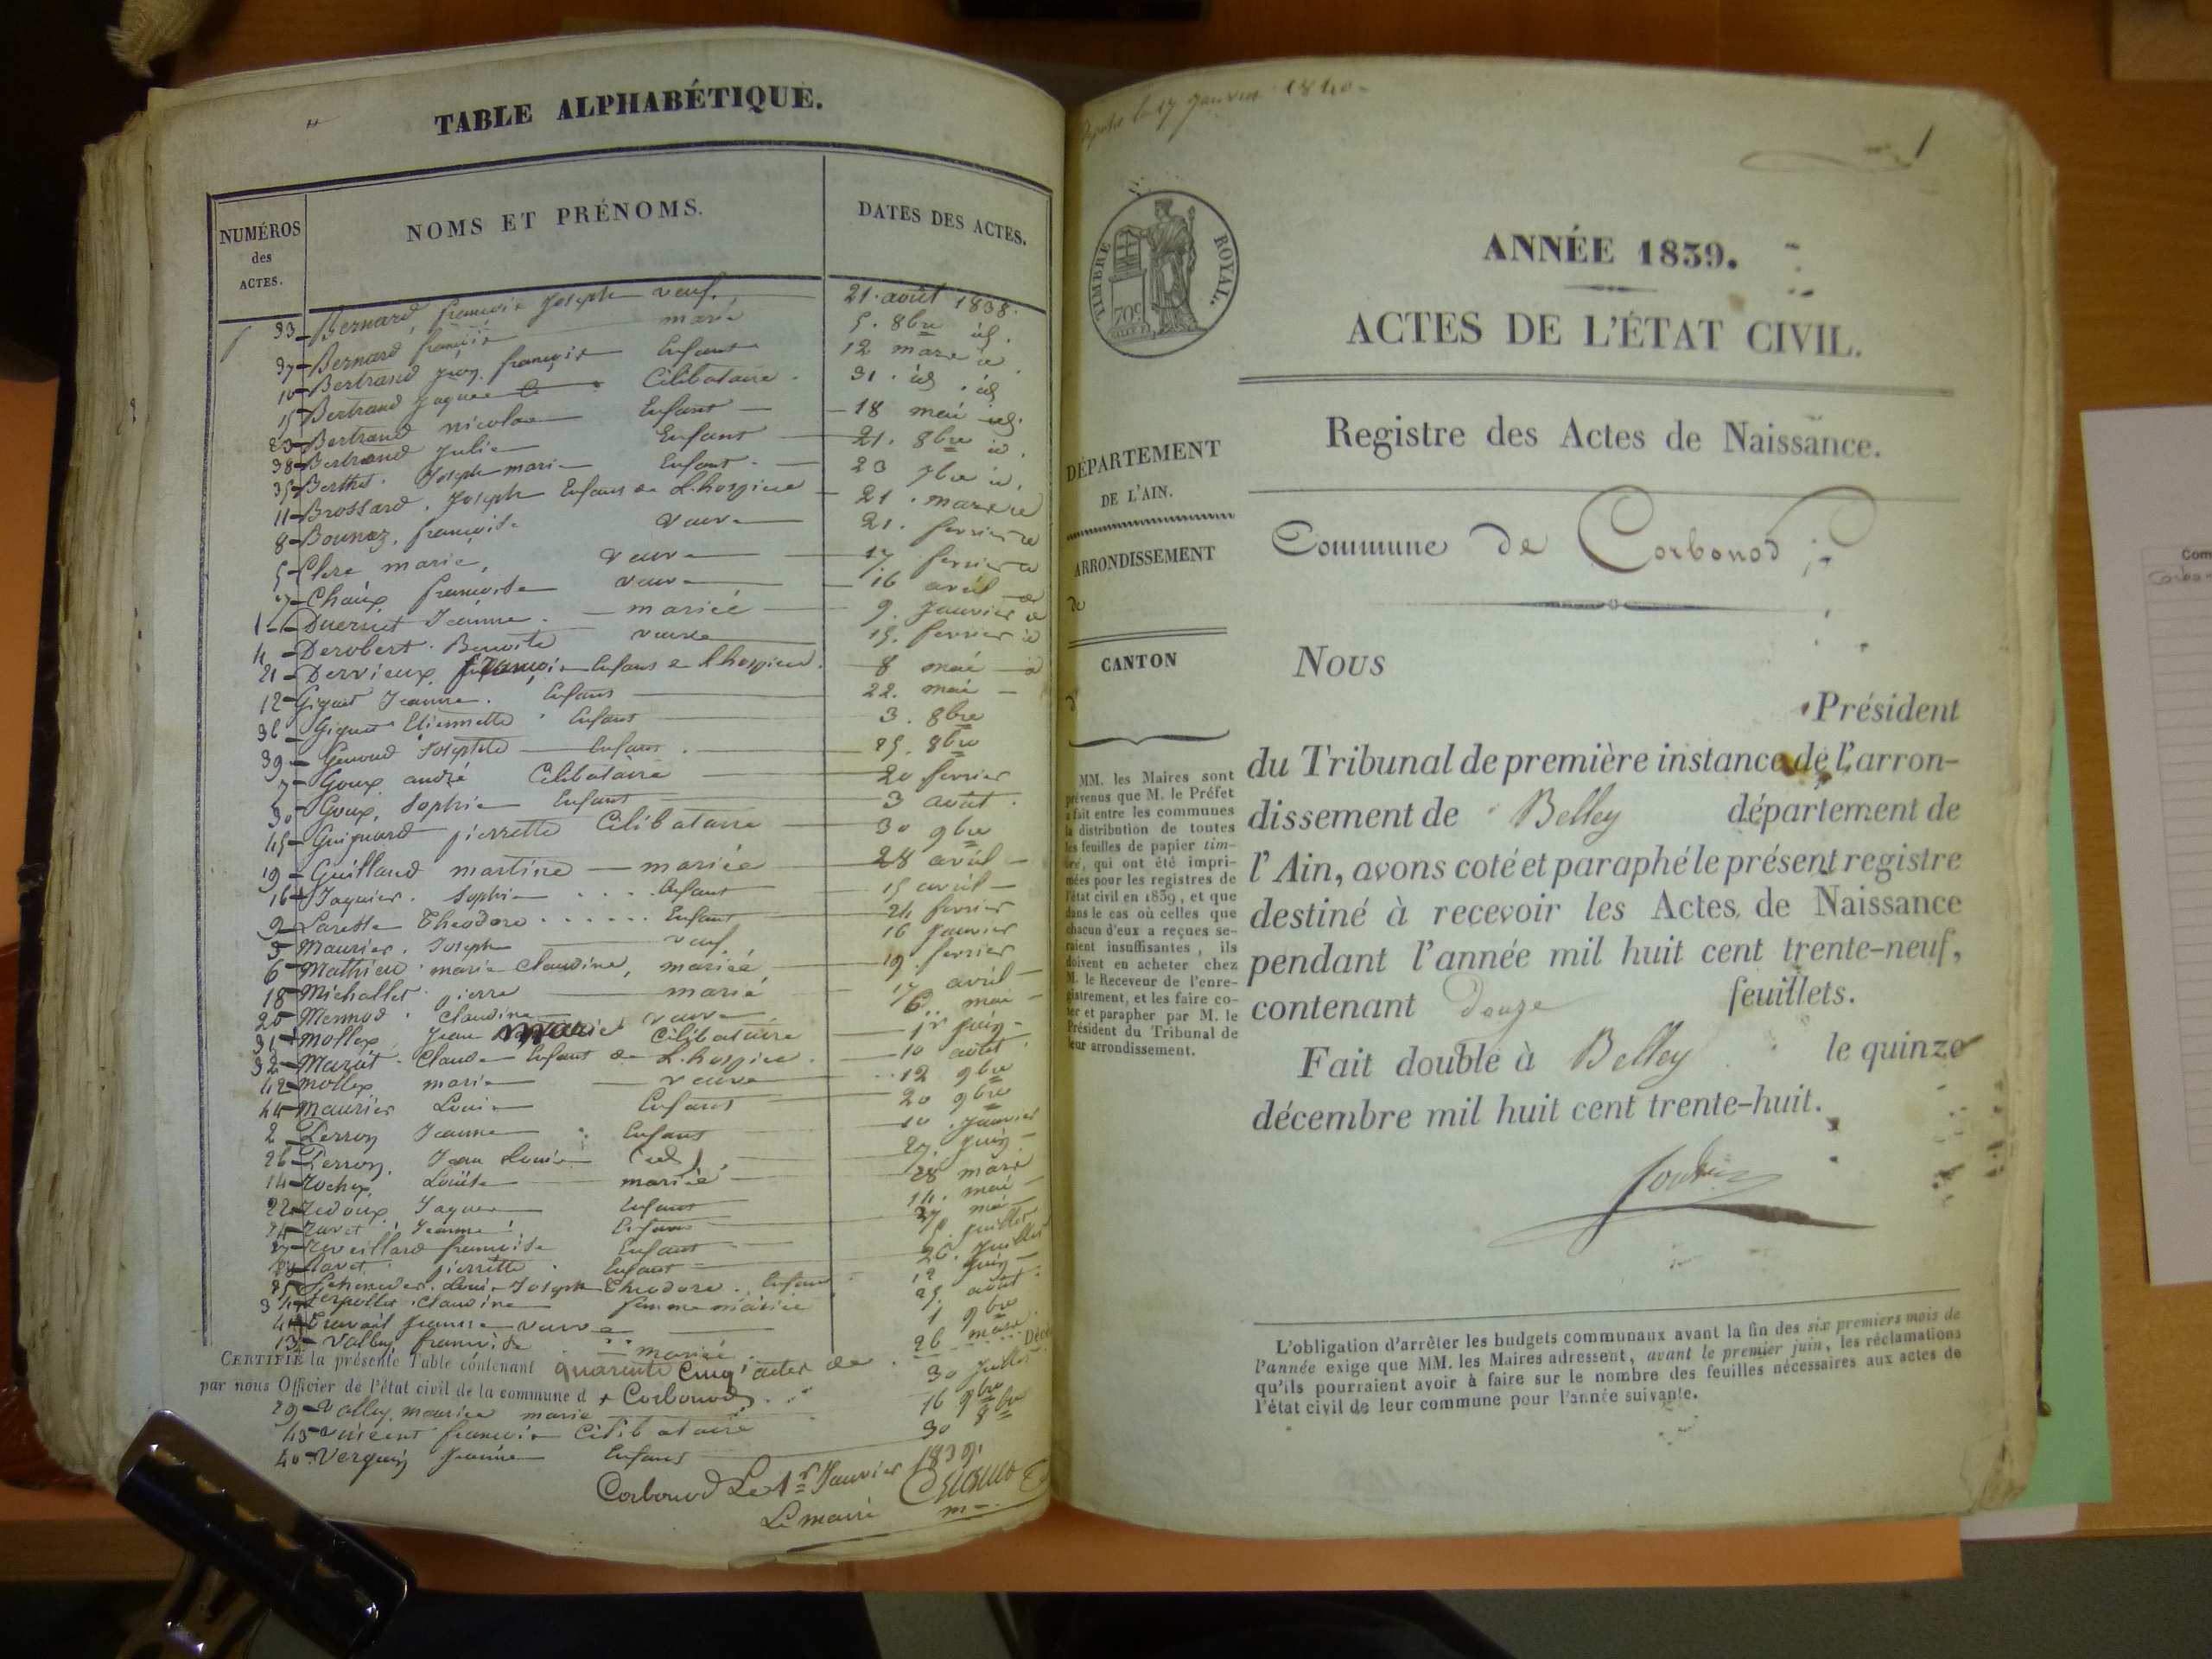 TABLE ALPHABÉTIQUE.
NUMÉROS des ACTES.
NOMS ET PRÉNOMS.
DATES DES ACTES.
33 Bernard françois Joseph veuf. 21. août 1838.
37 Bernard marié 5. 8bre id.
10 Bertrand françois Enfant 12 mars id
15 Bertrand Jaques Célibataire. 31. id. id
23 Bertrand nicolas Enfant 18 mai id.
38 Bertrand Julie Enfant 21. 8bre id.
35 Berthet. Joseph marie Enfant. 23 7bre id.
11 Brossard. Joseph Enfant de L.hospice 21. mars id
8 Bounaz. françoise veuve 21. fevrier id
5 Clerc marie, veuve 17 fevrier id
Chaux françoise veuve 16 avril id
1 Jeanne. mariée 9. Janvier id
4 Derobert. Benoite veuve 15. fevrier id
21 Dervieux françois Enfant de l'hospice. 8 mai id
12 Giguet Jeanne. Enfant 22. mai
36 Giguet Etiennette Enfant 3. 8bre
39 Genoud Josephte Enfant. 25. 8bre
7 Goux andré Célibataire 20 fevrier
30 Goux, Sophie Enfant 3 août.
45 Guignard pierrette Célibataire 30 9bre
19 Guilland martine mariée 28 avril
16 Jaquier. Sophie Enfant 15 avril
9 Theodore Enfant 24 fevrier
3 Maurier. Joseph veuf. 16 Janvier
6 Mathieu marie Claudine, mariée 19 fevrier
18 Michallet pierre marié 17 avril
20 Claudine veuve 6. mai
31 Mollex Jean marie Célibataire 1r Juin
32 Mazuit Claude Enfant de L.hospice. 10 août
42 mollex marie veuve 12 9bre
44 Maurier Louis Enfant 20 9bre
2 Perron Jeanne Enfant 10. Janvier
26 Perron. Jean Louis (id). 27. Juin
14 Rochex, Louise mariée 28 mars
22 Jaques Enfant 14. mai
24 Ravet Jeanne. Enfant 27 mai
27 Reveillard françoise Enfant 5. Juillet
Ravet pierrette Enfant 26. Juillet
25 Louis Joseph Theodore. Enfant 12 Juin
34 Claudine femme mariée 25. août
41 veuve 1 9bre
13 Valley françoise mariée 26 mars
CERTIFIÉ la présente Table contenant quarante Cinq actes de Décès
par nous Officier de l'état civil de la commune d e Corbonod
29 Valley, maurice marié 30 Juillet
43 vincent françois Célibataire 16 9bre
40 Verguin Jeanne Enfant 30 8bre
Corbonod Le 1r Janvier 1839.
Le maire
Déposé le 17 Janvier 1840
1
TIMBRE ROYAL.
70c
ANNÉE 1839.
ACTES DE L'ÉTAT CIVIL.
DÉPARTEMENT
DE L'AIN.
ARRONDISSEMENT
de
CANTON
d
MM. les Maires sont
prévenus que M. le Préfet
a fait entre les communes
la distribution de toutes
les feuilles de papier tim-
bré, qui ont été impri-
mées pour les registres de
l'état civil en 1839, et que
dans le cas où celles que
chacun d'eux a reçues se-
raient insuffisantes, ils
doivent en acheter chez
M. le Receveur de l'enre-
gistrement, et les faire co-
ter et parapher par M. le
Président du Tribunal de
leur arrondissement.
Registre des Actes de Naissance.
Commune de Corbonod
Nous
Président
du Tribunal de première instance de l'arron-
dissement de Belley département de
l'Ain, avons coté et paraphé le présent registre
destiné à recevoir les Actes de Naissance
pendant l'année mil huit cent trente-neuf,
contenant Douze feuillets.
Fait double à Belley le quinze
décembre mil huit cent trente-huit.
L'obligation d'arrêter les budgets communaux avant la fin des six premiers mois de
l'année exige que MM. les Maires adressent, avant le premier juin, les réclamations
qu'ils pourraient avoir à faire sur le nombre des feuilles nécessaires aux actes de
l'état civil de leur commune pour l'année suivante.
Com